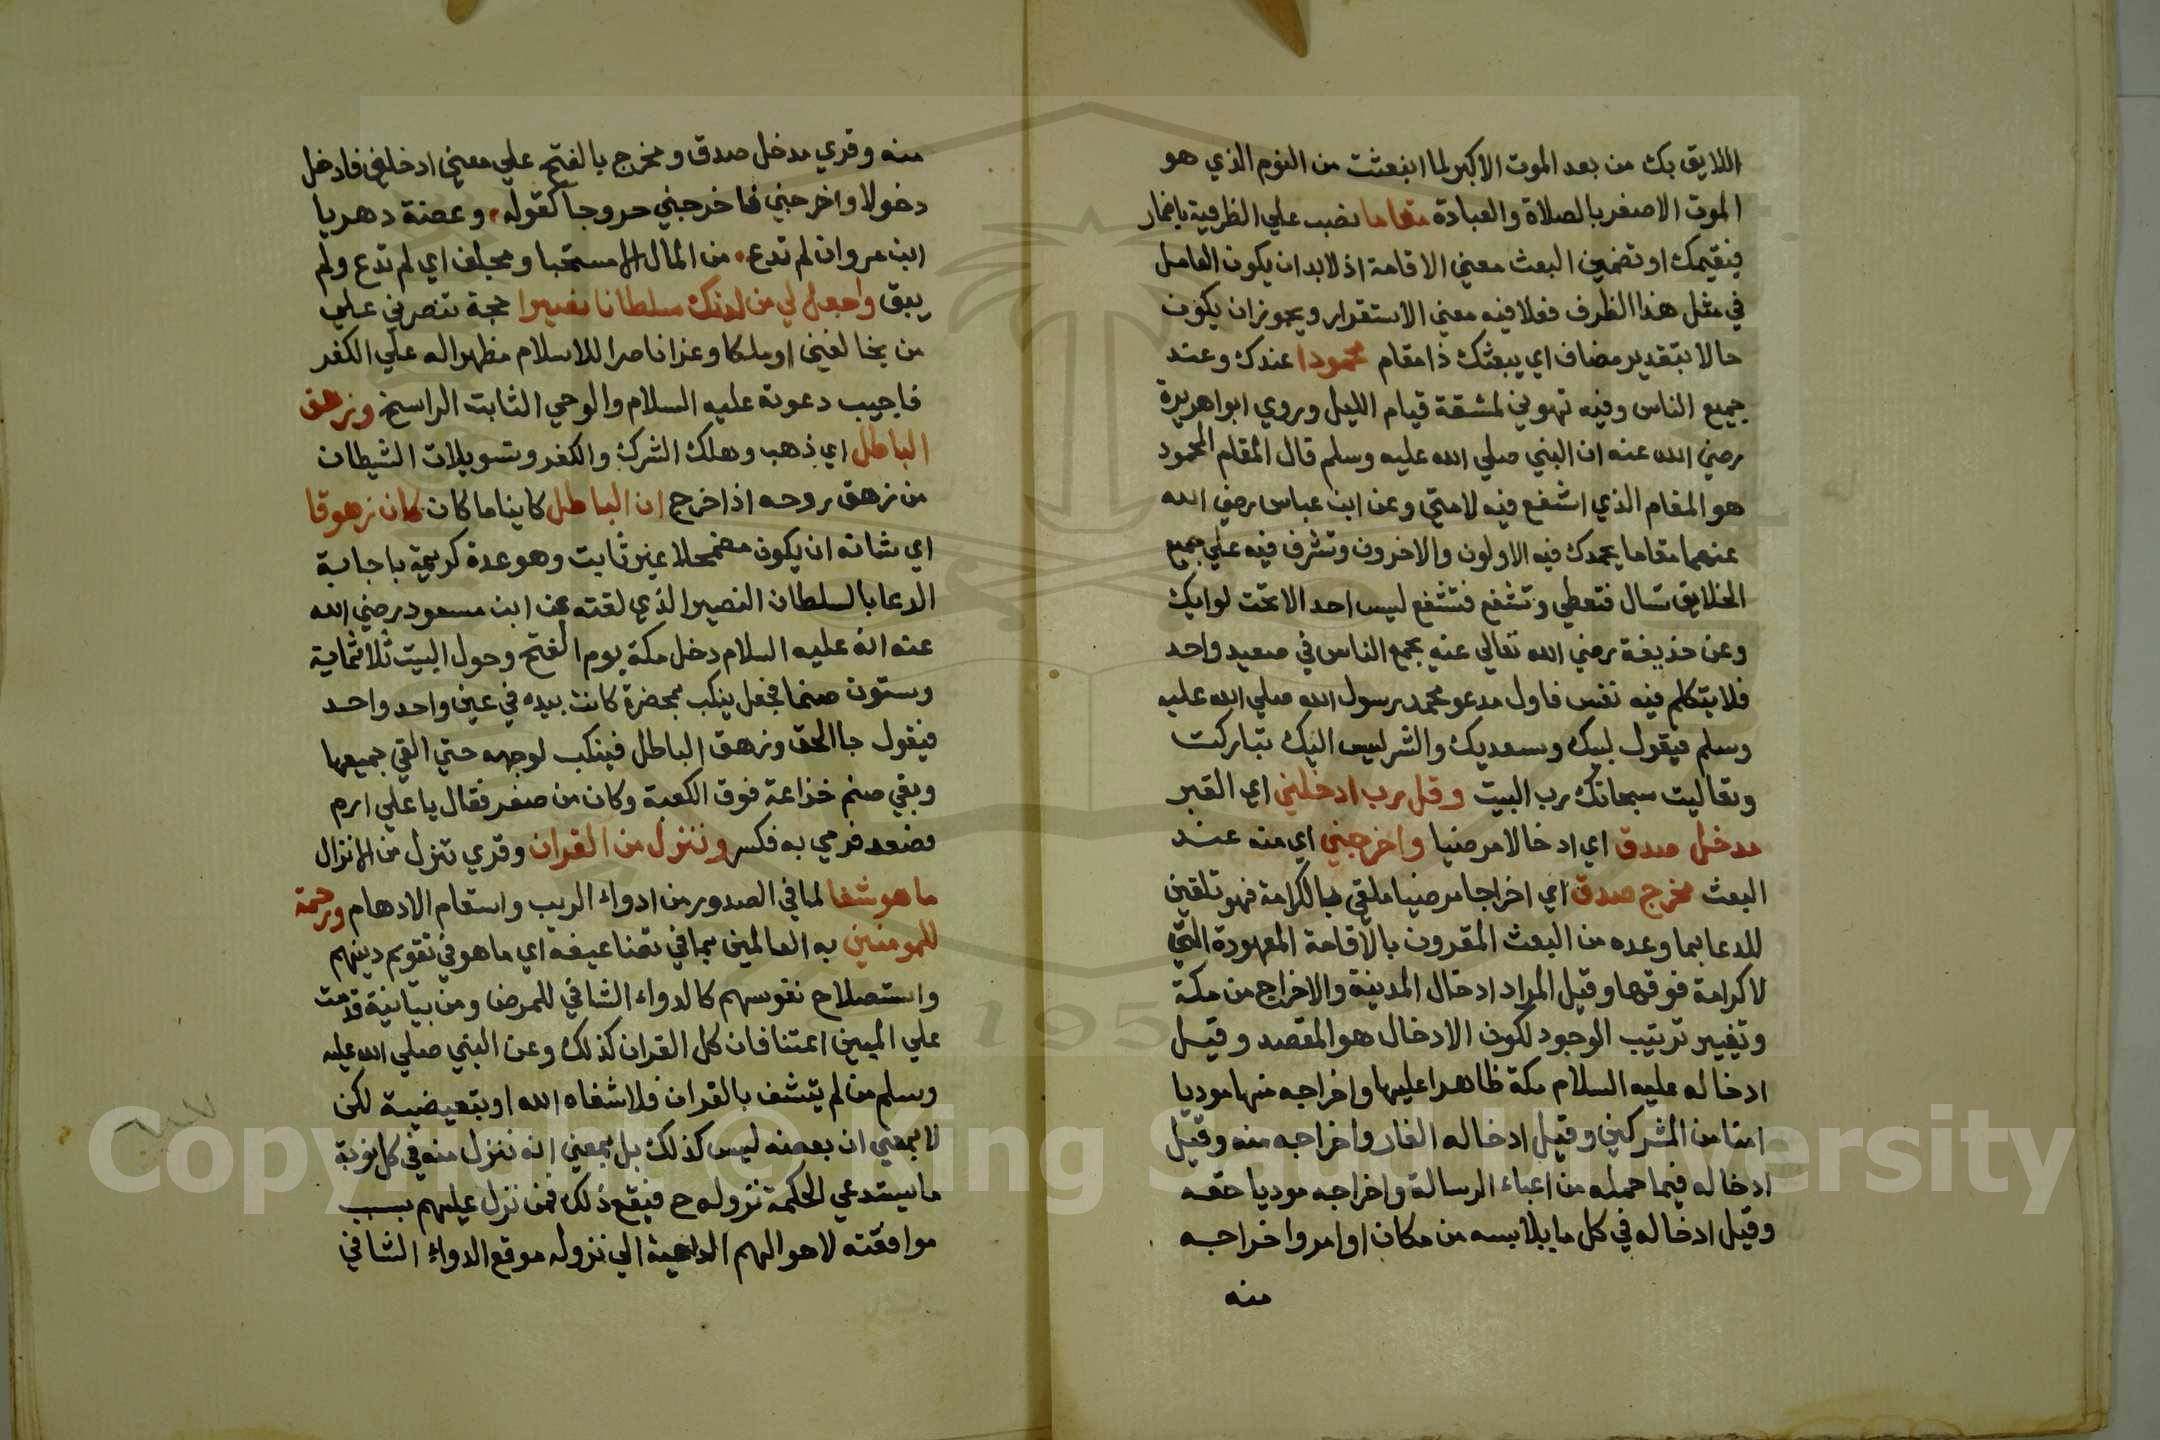 اللايق بك من بعد الموت الاكبر لما انبعثت من النوم الذي هو
الموت الاصغر بالصلاة والعبادة مقاما نصب علي الظرفية باضمار
فيقيمك او تضمين البعث معني الاقامة اذ لابد ان يكون العامل
في مثل هذا الظرف فعلا فيه معني الاستقرار ويجوز ان يكون
حالا بتقدير مضاف اي يبعثك ذا مقام محمودا عندك وعند
جميع الناس وفيه تهوين لمشقة قيام الليل وروي ابوا هريرة
رضي الله عنه ان النبي صلي الله عليه وسلم قال المقام المحمود
هو المقام الذي اشفع فيه لامتي وعن ابن عباس رضي الله
عنهما مقاما يحمدك فيه الاولون والاخرون وتشرف فيه علي جميع
الخلايق تسال فتعطي وتشفع فتشفع ليس احد الا تحت لوايك
وعن حذيفة رضي الله تعالي عنه يجمع الناس في صعيد واحد
فلا يتكلم فيه نفس فاول مدعو محمد رسول الله صلي الله عليه
وسلم فيقول لبيك وسعديك والشر ليس اليك تباركت
وتعاليت سبحانك رب البيت وقل رب ادخلني اي القبر
مدخل صدق اي ادخالا مرضيا واخرجني اي منه عند
البعث مخرج صدق اي اخراجا مرضيا ملقي بالكرامة فهو تلقين
للدعا بما وعده من البعث المقرون بالاقامة المعهودة التي
لا كرامة فوقها وقيل المراد ادخال المدينة والاخراج من مكة
وتغيير ترتيب الوجود لكون الادخال هو المقصد وقيل
ادخاله عليه السلام مكة ظاهرا عليها واخراجه منها موديا
امنا من المشركين وقيل ادخاله الغار واخراجه منه وقيل
ادخاله فيما حمله من اعباء الرسالة واخراجه موديا حقه
وقيل ادخاله في كل ما يلابسه من مكان او امر واخراجه
منه
منه وقري مدخل صدق ومخرج بالفتح علي معني ادخلني فادخل
دخولا واخرجني فاخرجني خروجا كقوله وعضة دهر يا
ابن مروان لم تدع من المال الا مستحبا ومجلف اي لم تدع ولم
يبق واجعل لي من لدنك سلطانا نصيرا حجة تنصرني علي
من يخالفني او ملكا وعزا ناصرا للاسلام مظهرا له علي الكفر
فاجيب دعوته عليه السلام والوحي الثابت الراسخ وزهق
الباطل اي ذهب وهلك الشرك والكفر وتسويلات الشيطان
من زهق روحه اذا خرج ان الباطل كاينا ما كان كان زهوقا
اي شانه ان يكون مضمحلا غير ثابت وهو عدة كريمة باجابة
الدعا بالسلطان النصير الذي لقنه عن ابن مسعود رضي الله
عنه انه عليه السلام دخل مكة يوم الفتح وحول البيت ثلاثماية
وستون صنما فجعل ينكب بمخصرة كانت بيده في عين واحد واحد
فيقول جا الحق وزهق الباطل فينكب لوجهه حتي القي جميعها
وبقي صنم خذاعة فوق الكعبة وكان من صفر فقال يا علي ارم
فصعد فرمي به فكسر وننزل من القران وقري تنزل من الانزال
ما هو شفا لما في الصدور من ادواء الريب واسقام الاوهام ورحمة
للمومنين به العالمين بما في تضاعيفه اي ما هو في تقويم دينهم
واستصلاح نفوسهم كالدواء الشافي للمرض ومن بيانية قدمت
علي المبين اعتنا فان كل القران كذلك وعن النبي صلي الله عليه
وسلم من لم يتشف بالقران فلا شفاه الله او تبعيضية لكن
لا بمعني ان بعضه ليس كذلك بل بمعني انه ننزل منه في كل نوبة
ما يستدعي الحكمة نزوله ح فيقع ذلك فمن نزل عليهم بسبب
موافقته لاحوالهم الداعية الي نزوله موقع الدواء الشافي
Copyright © King Saud University
1957